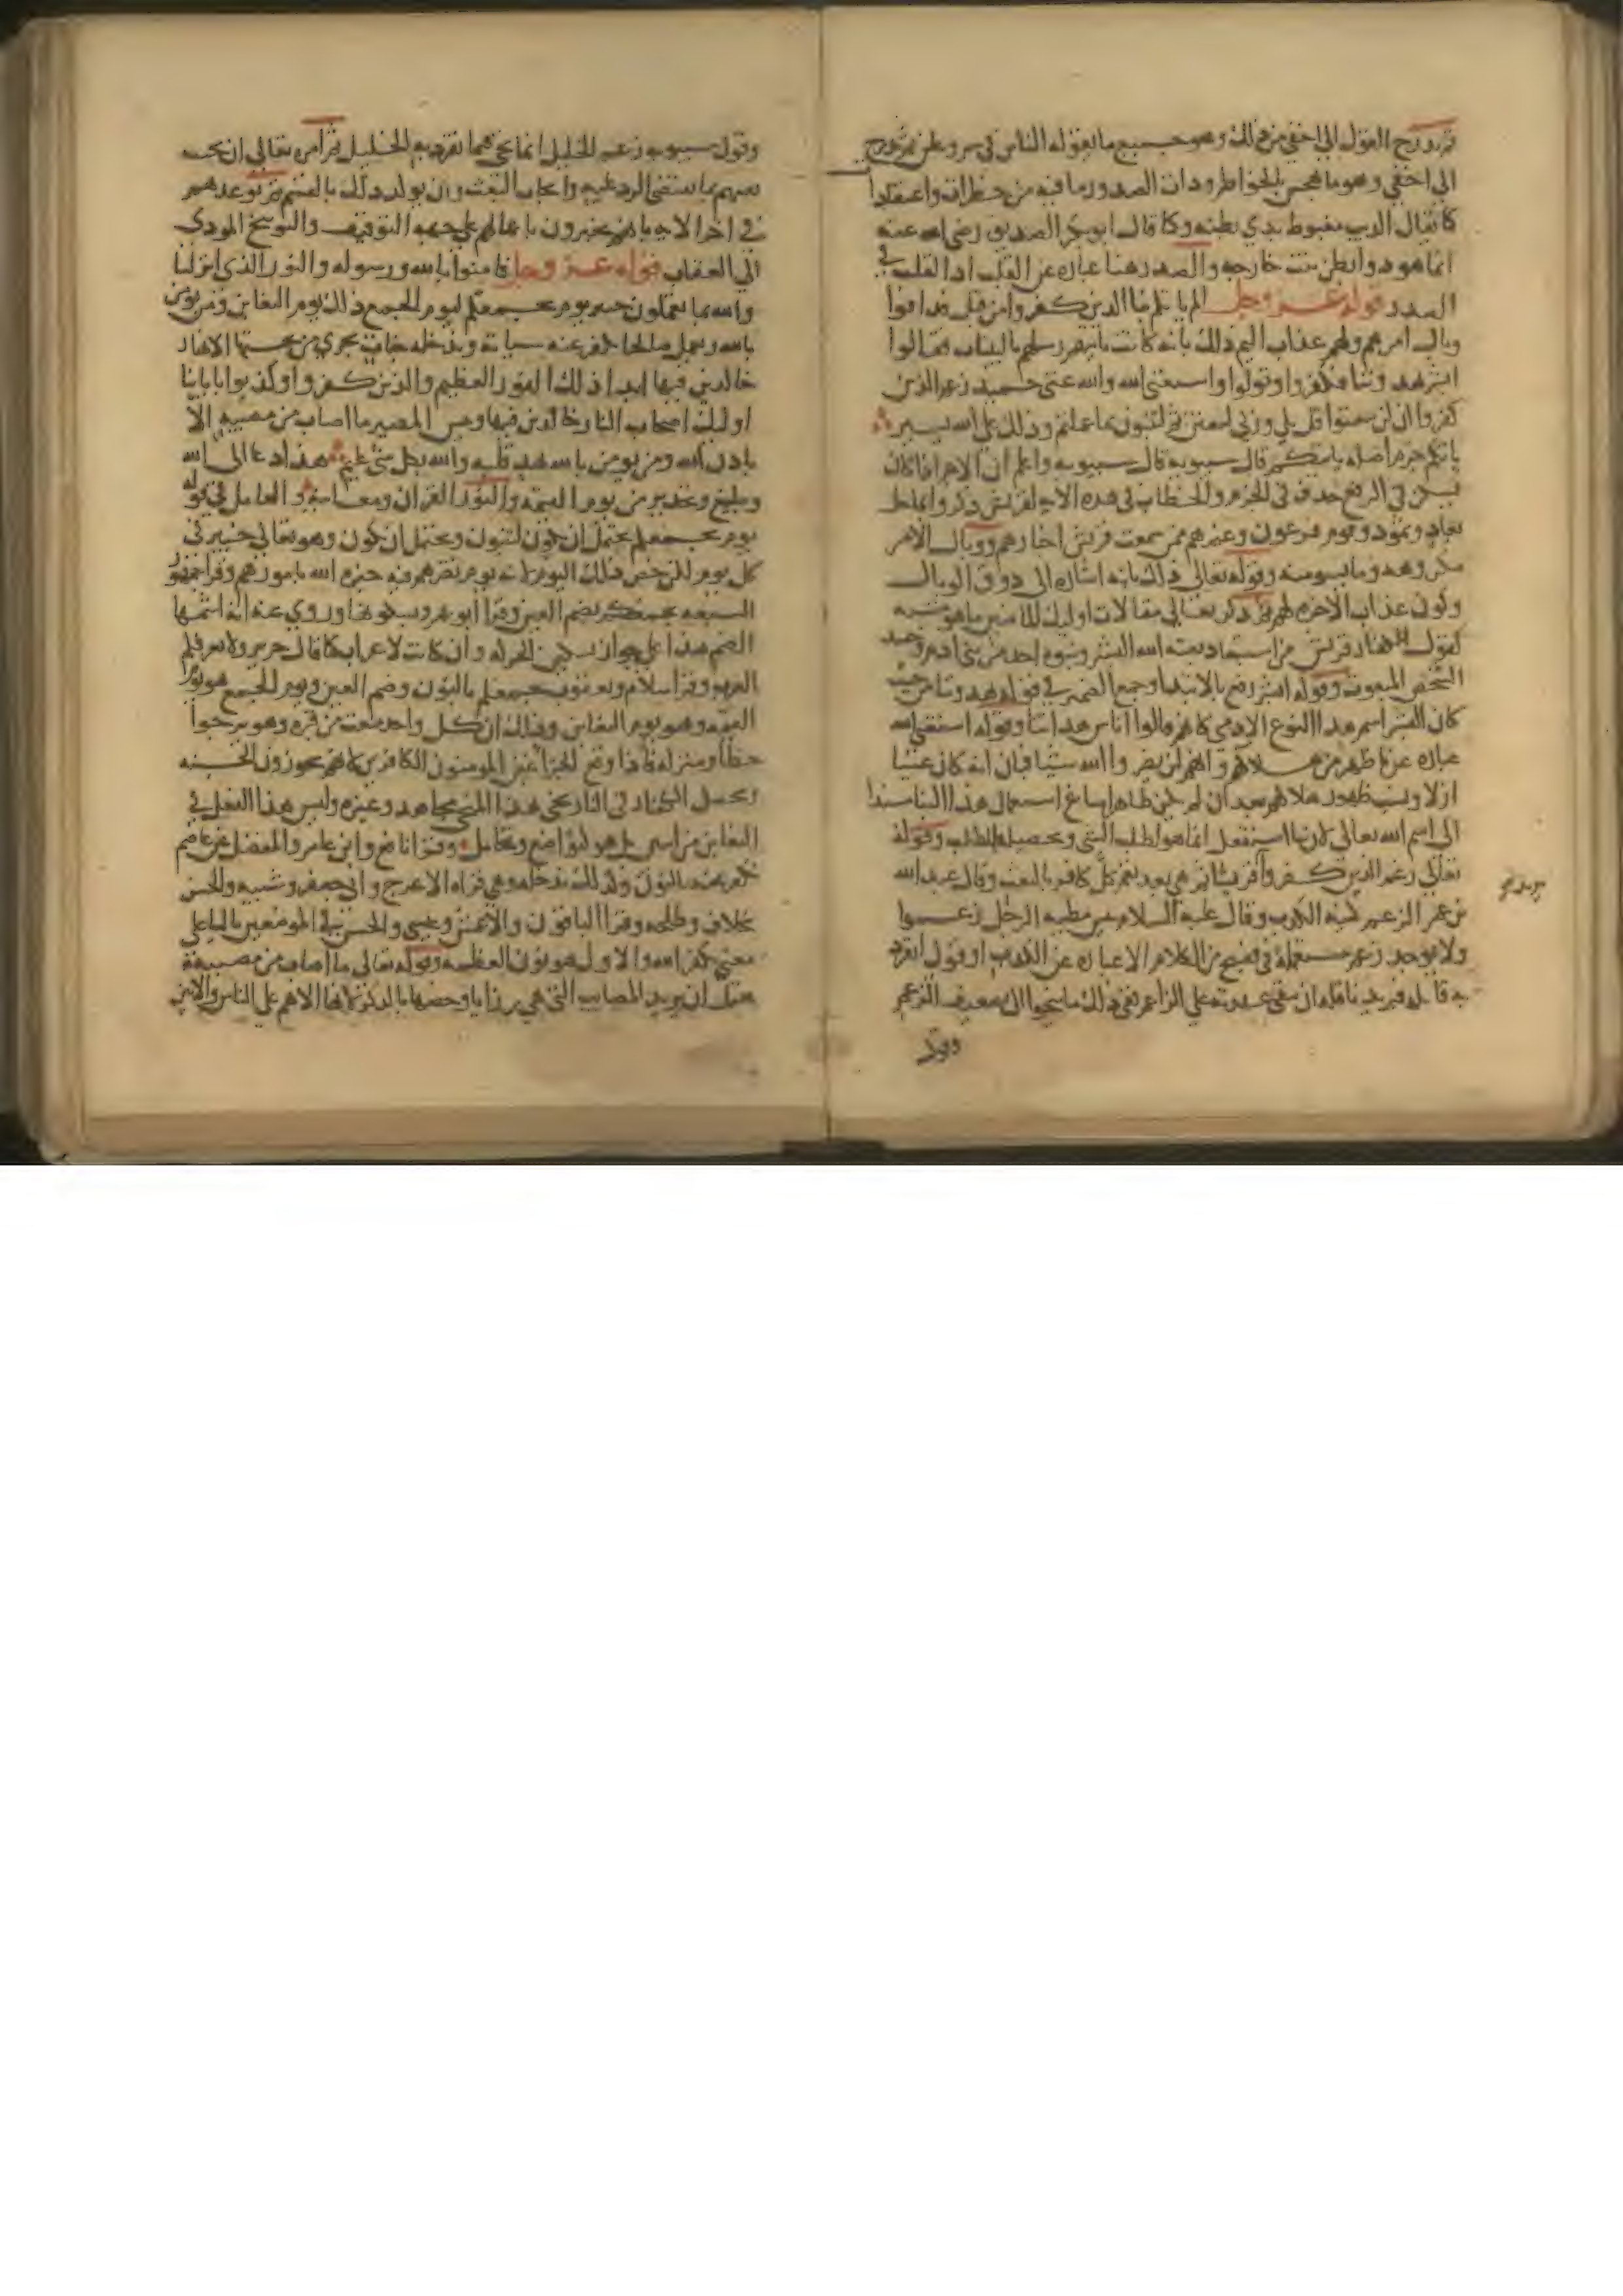 ثم تدرج القول الى اخفى من ذلك وهو جميع ما يقوله الناس في سر وعلن ثم تدرج
الى اخفى وهو ما يهجس بالخواطر وذات الصدور ما فيه من خطرات واعتقادا
كما يقال الذيب مغبوط بذي بطنه وكما قال ابو بكر الصديق رضي الله عنه
انما هو ذو بطن بنت خارجه والصدر هنا عباره عن القلب اذ القلب في
الصدر قوله عز وجل الم ياتكم نبا الذين كفروا من قبل فذاقوا
وبال امرهم ولهم عذاب اليم ذلك بانه كانت تاتيهم رسلهم بالبينات فقالوا
ابشر يهدوننا فكفروا وتولوا واستغنى الله والله غني حميد زعم الذين
كفروا ان لن يبعثوا قل بلى وربي لتبعثن ثم لتنبؤن بما عملتم وذلك على الله يسير
ياتكم جزم اصله ياتيكم قال سيبويه واعلم ان الاخر اذا كان
يسكن في الرفع حذف في الجزم والخطاب في هذه الايه لقريش ذكروا بما حل
بعاد وثمود وقوم فرعون وغيرهم ممن سمعت قريش اخبارهم ووبال الامر
مكروهه وما يسوء منه وقوله تعالى ذلك بانه اشاره الى ذوق الوبال
وكون عذاب الاخره لهم ثم ذكر تعالى مقالات اوليك الماضين ما هو مشبه
لقول كفار قريش من استبعاد بعث الله البشر ونبوه احد من بني ادم وحسد
الشخص المبعوث وقوله ابشر رفع بالابتدا وجمع الضمير في قوله يهدوننا من حيث
كان البشر اسم هذا النوع الادمي كانهم قالوا اناس هداتنا وقوله استغنى الله
عباره عن ما ظهر من هلاكهم وانهم لن يضروا الله شيا فبان انه كان غنيا
ازلا وبسبب ظهور هلاكهم بعد ان لم يكن ظاهرا ساغ استعمال هذا البنا مسندا
الى اسم الله تعالى لان بنا استفعل انما هو لطلب الشي وتحصيله بالطلب وقوله
تعالى زعم الذين كفروا قريشا ثم هي بعد تعم كل كافر بالبعث وقال عبد الله
بن عمر الزعم كنيه الكذب وقال عليه السلام بيس مطيه الرجل زعموا
ولا يوجد زعم مستعمله في فصيح من الكلام الا عباره عن الكذب او قول انفرد
به قايله فيريد ناقله ان يبقي عهدته على الزاعم ففي ذلك ما ينحوا الى تضعيف الزعم
وقول
وقول سيبويه زعم الخليل انما يجي فيما تفرد به الخليل ثم امره تعالى ان يجيب
نفيهم بما يقتضي الرد عليه وايجاب البعث وان يوكد ذلك بالقسم ثم توعدهم
في اخر الايه بانهم يخبرون باعمالهم على جهه التوقيف والتوبيخ المودي
الى العقاب قوله عز وجل فامنوا بالله ورسوله والنور الذي انزلنا
والله بما تعملون خبير يوم يجمعكم ليوم الجمع ذلك يوم التغابن ومن يومن
بالله ويعمل صالحا نكفر عنه سياته وندخله جنات تجري من تحتها الانهار
خالدين فيها ابدا ذلك الفوز العظيم والذين كفروا وكذبوا باياتنا
اوليك اصحاب النار خالدين فيها وبيس المصير ما اصاب من مصيبه الا
باذن الله ومن يومن بالله يهد قلبه والله بكل شي عليم هذا دعا الى الله
وتبليغ وتحذير من يوم القيمه والنور القران ومعانيه والعامل في قوله
يوم يجمعكم يحتمل ان يكون لتنبون ويحتمل ان يكون وهو تعالى خبير في
كل يوم لكن خص ذلك اليوم لانه يوم تضرهم فيه خبره الله بامورهم وقرا جمهور
السبعه يجمعكم بضم العين وقرا ابو عمرو بسكونها وروي عنه انه اشمها
الضم هذا على جواز تسكين الحركه وان كانت لاعراب كما قال جرير ولا تعرفكم
العرب وقرا سلام ويعقوب نجمعكم بالنون وضم العين ويوم الجمع هو يوم
القيمه وهو يوم التغابن وذلك ان كل واحد يبعث من قبره وهو يرجوا
حظا ومنزله فاذا وقع الجزا غبن المومنون الكافرين لانهم يحوزون الجنه
ويحصل الكفار في النار نحى هذا المنحى مجاهد وغيره وليس هذا الفعل في
التغابن من اثنين بل هو كتواضع وتحامل وقرا نافع وابن عامر والمفضل عن عاصم
نكفر عنه بالنون وكذلك ندخله وهي قراه الاعرج وابي جعفر وشيبه والحسن
بخلاف وطلحه وقرا الباقون والاعمش وعيسى والحسن في الموضعين باليا على
معنى يكفر الله والاول هو نون العظمه وقوله تعالى ما اصاب من مصيبة
يحتمل ان يريد المصايب التي هي رزايا وخصها بالذكر لانها الاهم على الناس والابين